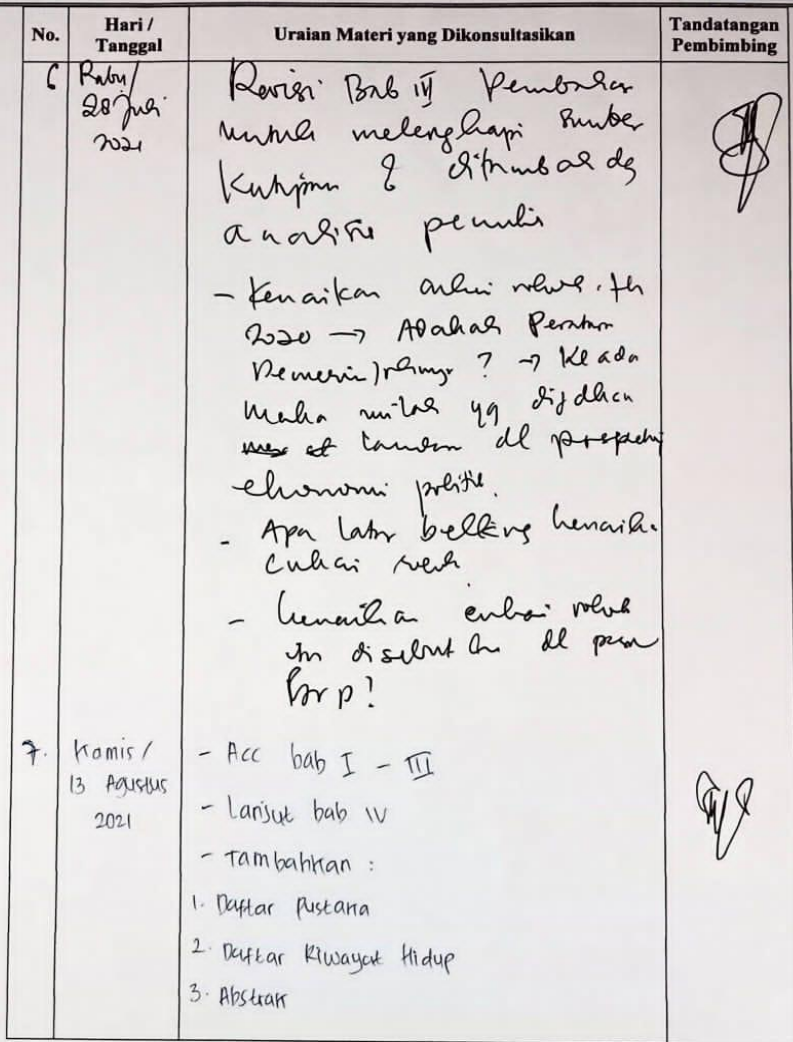 No.
Hari /
Tanggal
Uraian Materi yang Dikonsultasikan
Tandatangan
Pembimbing
6
Rabu/
28 Juli
2021
Revisi Bab III
untuk melengkapi Sumber
Kutipan & ditambah dg
analisis penulis
- Kenaikan cukai rokok th
2020 → Adakah Peraturan
? →
yg
dl
ekonomi politik.
- Apa latar belkng kenaik.
cukai
- kenaikan cukai rokok
disebutkan dl
brp?
7.
Kamis /
13 Agustus
2021
- Acc bab I - III
- Lanjut bab IV
- Tambahkan :
1. Daftar Pustaka
2. Daftar Riwayat Hidup
3. Abstrak